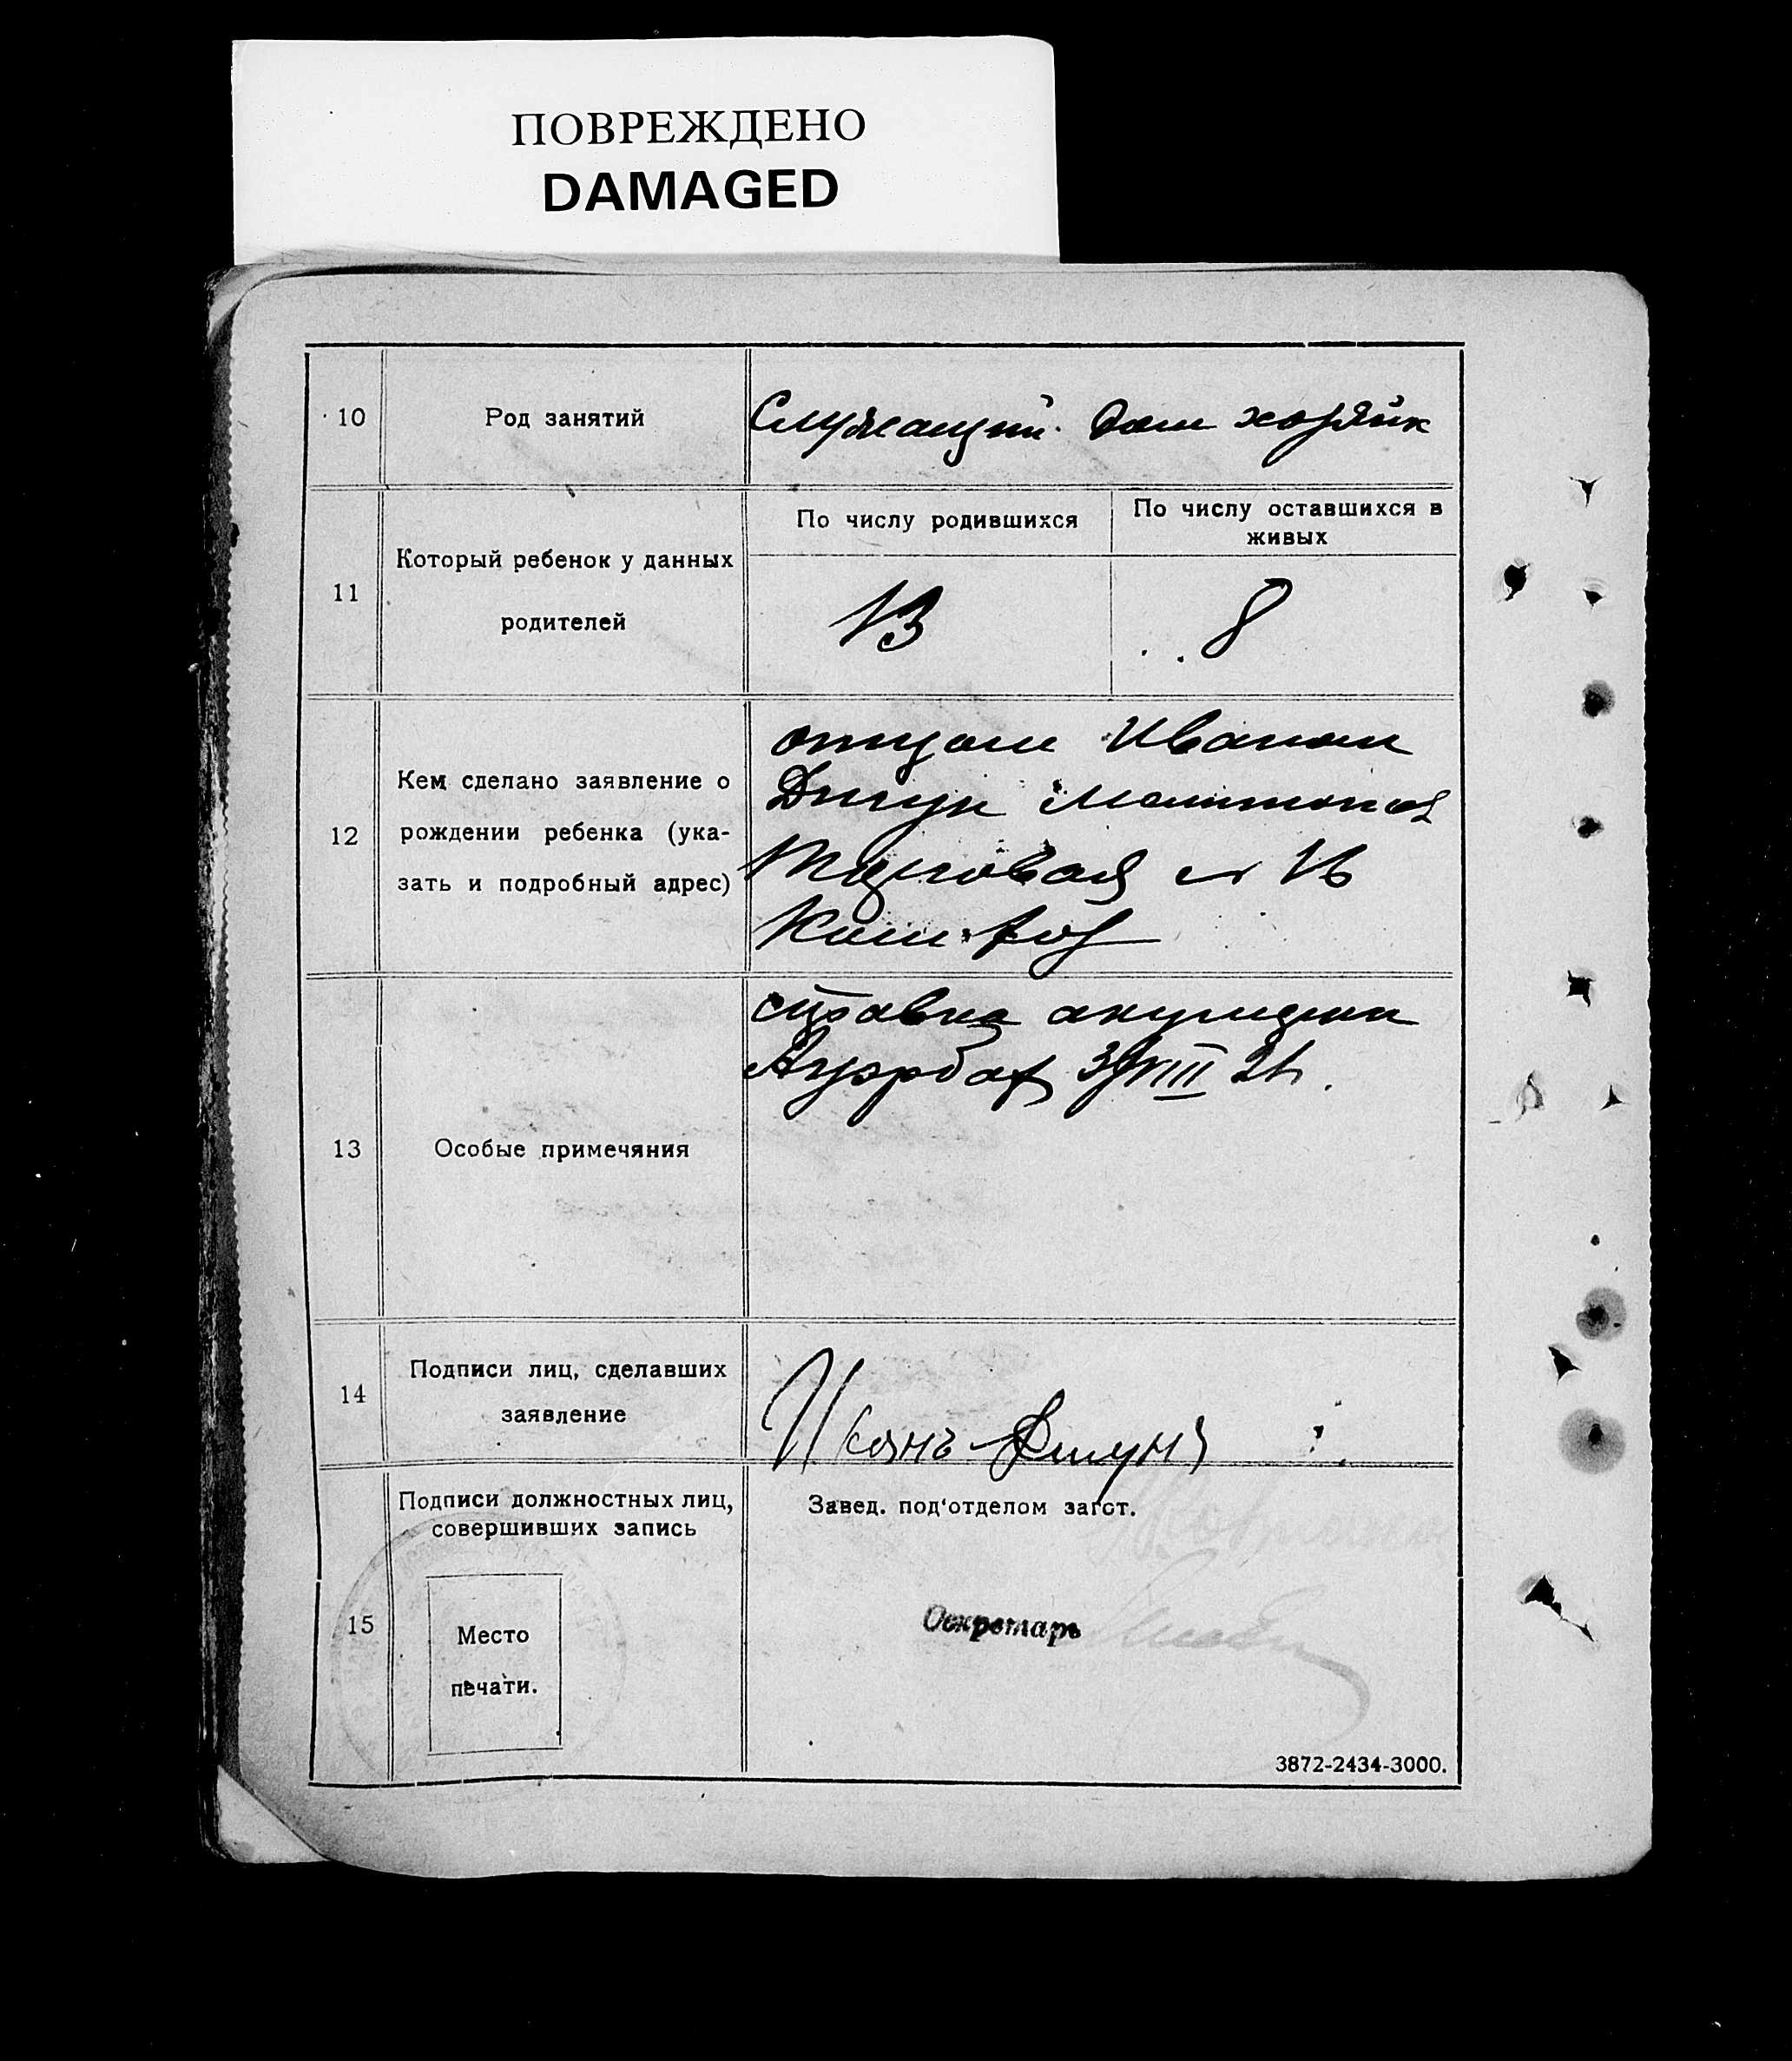 ПОВРЕЖДЕНО
DAMAGED
10
Род занятий
Служащий. Дом хозяйк
11
Который ребенок у данных
родителей
По числу родившихся
По числу оставшихся в
живых
13
8
12
Кем сделано заявление о
рождении ребенка (ука-
зать и подробный адрес)
отцом Иваном
13
Особые примечяния
справка акушерки
Ауэрбах
14
Подписи лиц, сделавших
заявление
15
Подписи должностных лиц,
совершивших запись
Место
печати.
Завед. под'отделом загст.
Секретарь
3872-2434-3000.